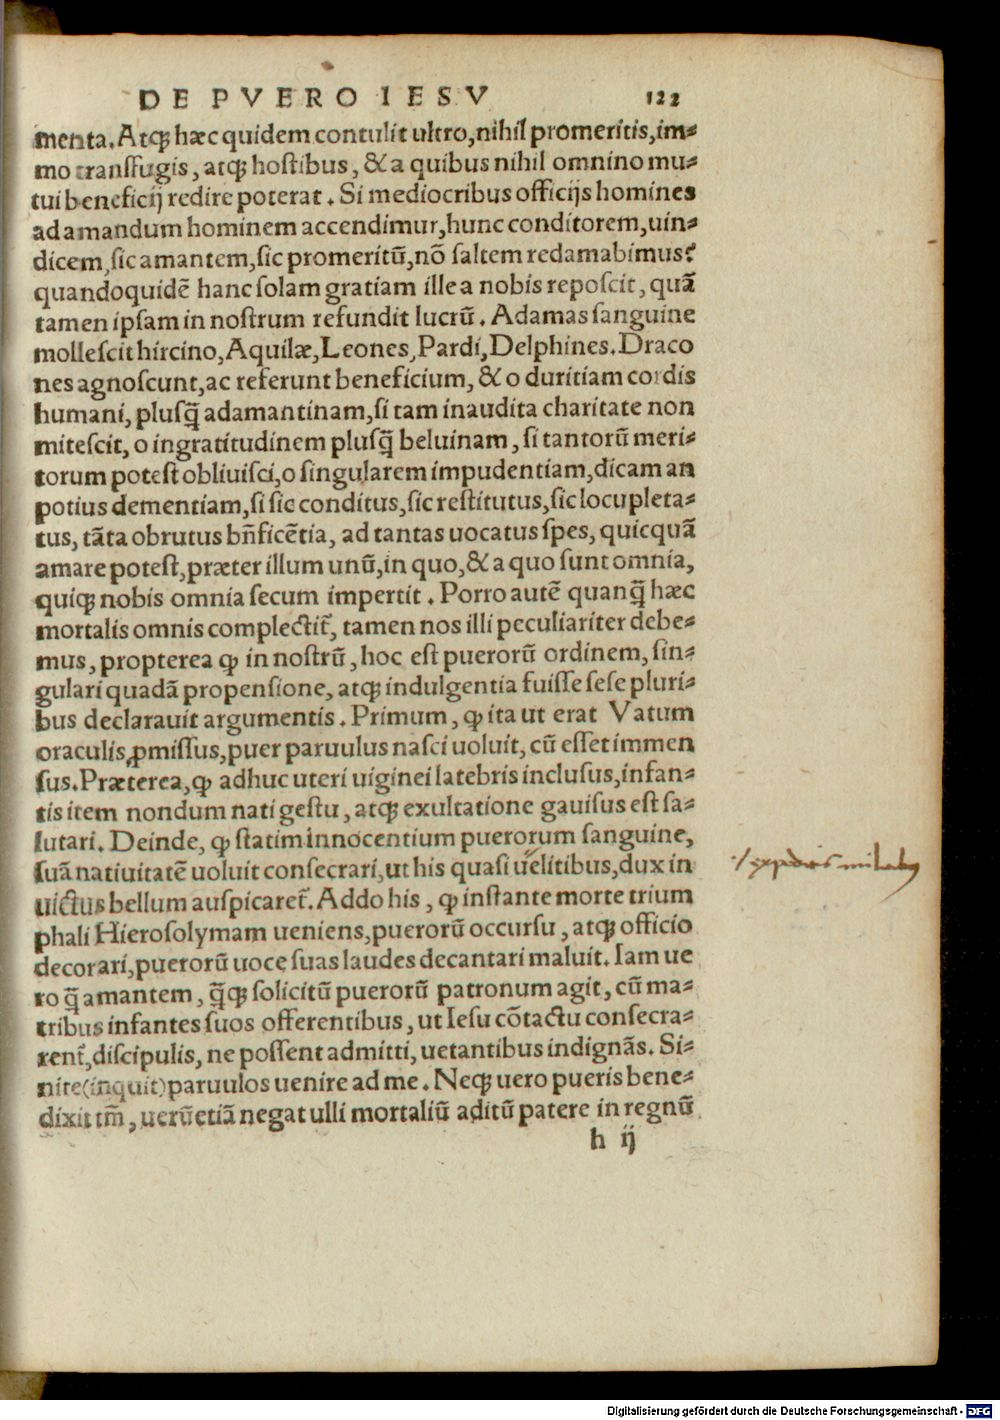 DE PVERO IESV 122
menta. Atq; hæc quidem contulit ultro, nihil promeritis, im⸗
mo transfugis, atq; hostibus, & a quibus nihil omnino mu⸗
tui beneficij redire poterat. Si mediocribus officijs homines
ad amandum hominem accendimur, hunc conditorem, uin⸗
dicem, sic amantem, sic promeritū, nō saltem redamabimus?
quandoquidē hanc solam gratiam ille a nobis reposcit, quā
tamen ipsam in nostrum refundit lucrū. Adamas sanguine
mollescit hircino, Aquilæ, Leones, Pardi, Delphines. Draco
nes agnoscunt, ac referunt beneficium, & o duritiam cordis
humani, plusq̄ adamantinam, si tam inaudita charitate non
mitescit, o ingratitudinem plusq̄ beluinam, si tantorū meri⸗
torum potest obliuisci, o singularem impudentiam, dicam an
potius dementiam, si sic conditus, sic restitutus, sic locupleta⸗
tus, tāta obrutus bn̄ficētia, ad tantas uocatus spes, quicquā
amare potest, præter illum unū, in quo, & a quo sunt omnia,
quiq; nobis omnia secum impertit. Porro autē quanq̄ hæc
mortalis omnis complectit̃, tamen nos illi peculiariter debe⸗
mus, propterea ꝙ in nostrū, hoc est puerorū ordinem, sin⸗
gulari quadā propensione, atq; indulgentia fuisse sese pluri⸗
bus declarauit argumentis. Primum, ꝙ ita ut erat Vatum
oraculis ꝓmissus, puer paruulus nasci uoluit, cū esset immen
sus. Præterea, ꝙ adhuc uteri uiginei latebris inclusus, infan⸗
tis item nondum nati gestu, atq; exultatione gauisus est sa⸗
lutari. Deinde, ꝙ statim innocentium puerorum sanguine,
suā natiuitatē uoluit consecrari, ut his quasi uelitibus, dux in
uictus bellum auspicaret̃. Addo his, ꝙ instante morte trium
phali Hierosolymam ueniens, puerorū occursu, atq; officio
decorari, puerorū uoce suas laudes decantari maluit. Iam ue
ro q̄ amantem, q̄q; solicitū puerorū patronum agit, cū ma⸗
tribus infantes suos offerentibus, ut Iesu cōtactu consecra⸗
rent̃, discipulis, ne possent admitti, uetantibus indignās. Si⸗
nite (inquit) paruulos uenire ad me. Neq; uero pueris bene⸗
dixit tm̄, uerūetiā negat ulli mortaliū aditū patere in regnū
h ij
Digitalisierung gefördert durch die Deutsche Forschungsgemeinschaft - DFG